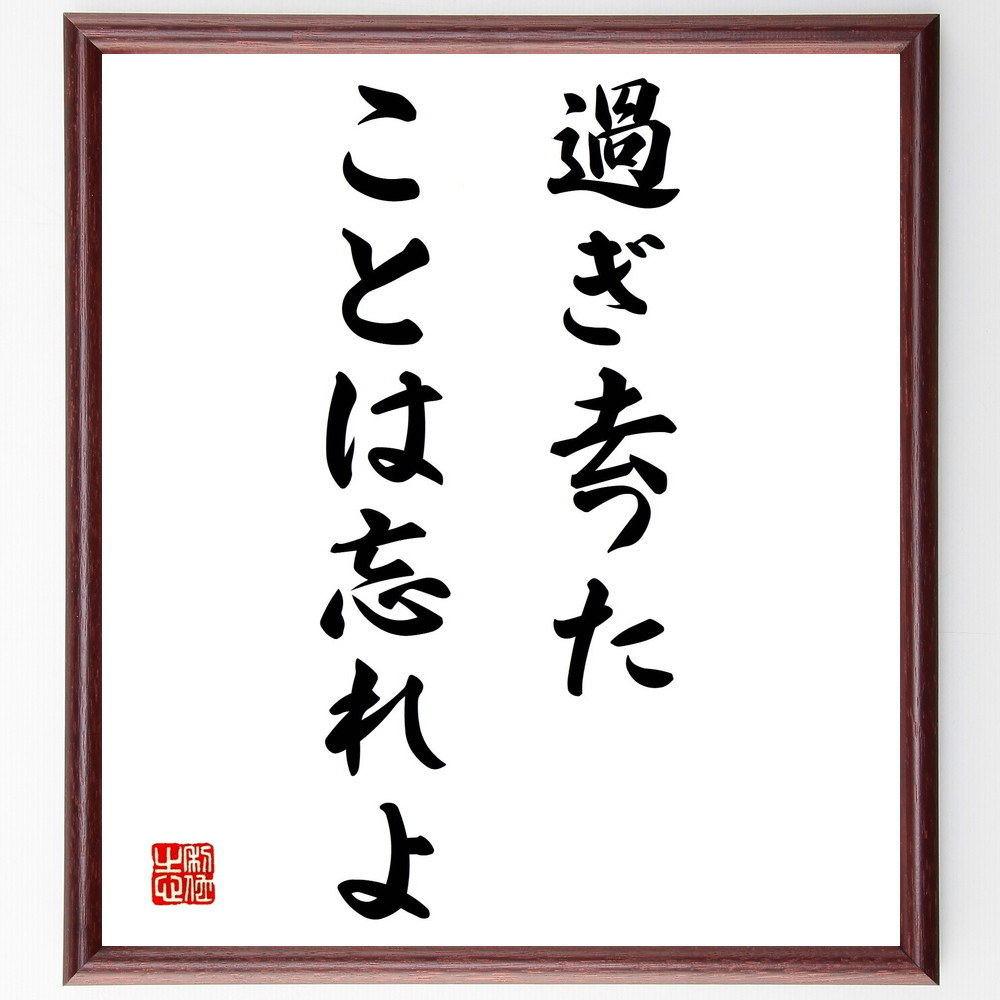 過ぎ去った
ことは忘れよ